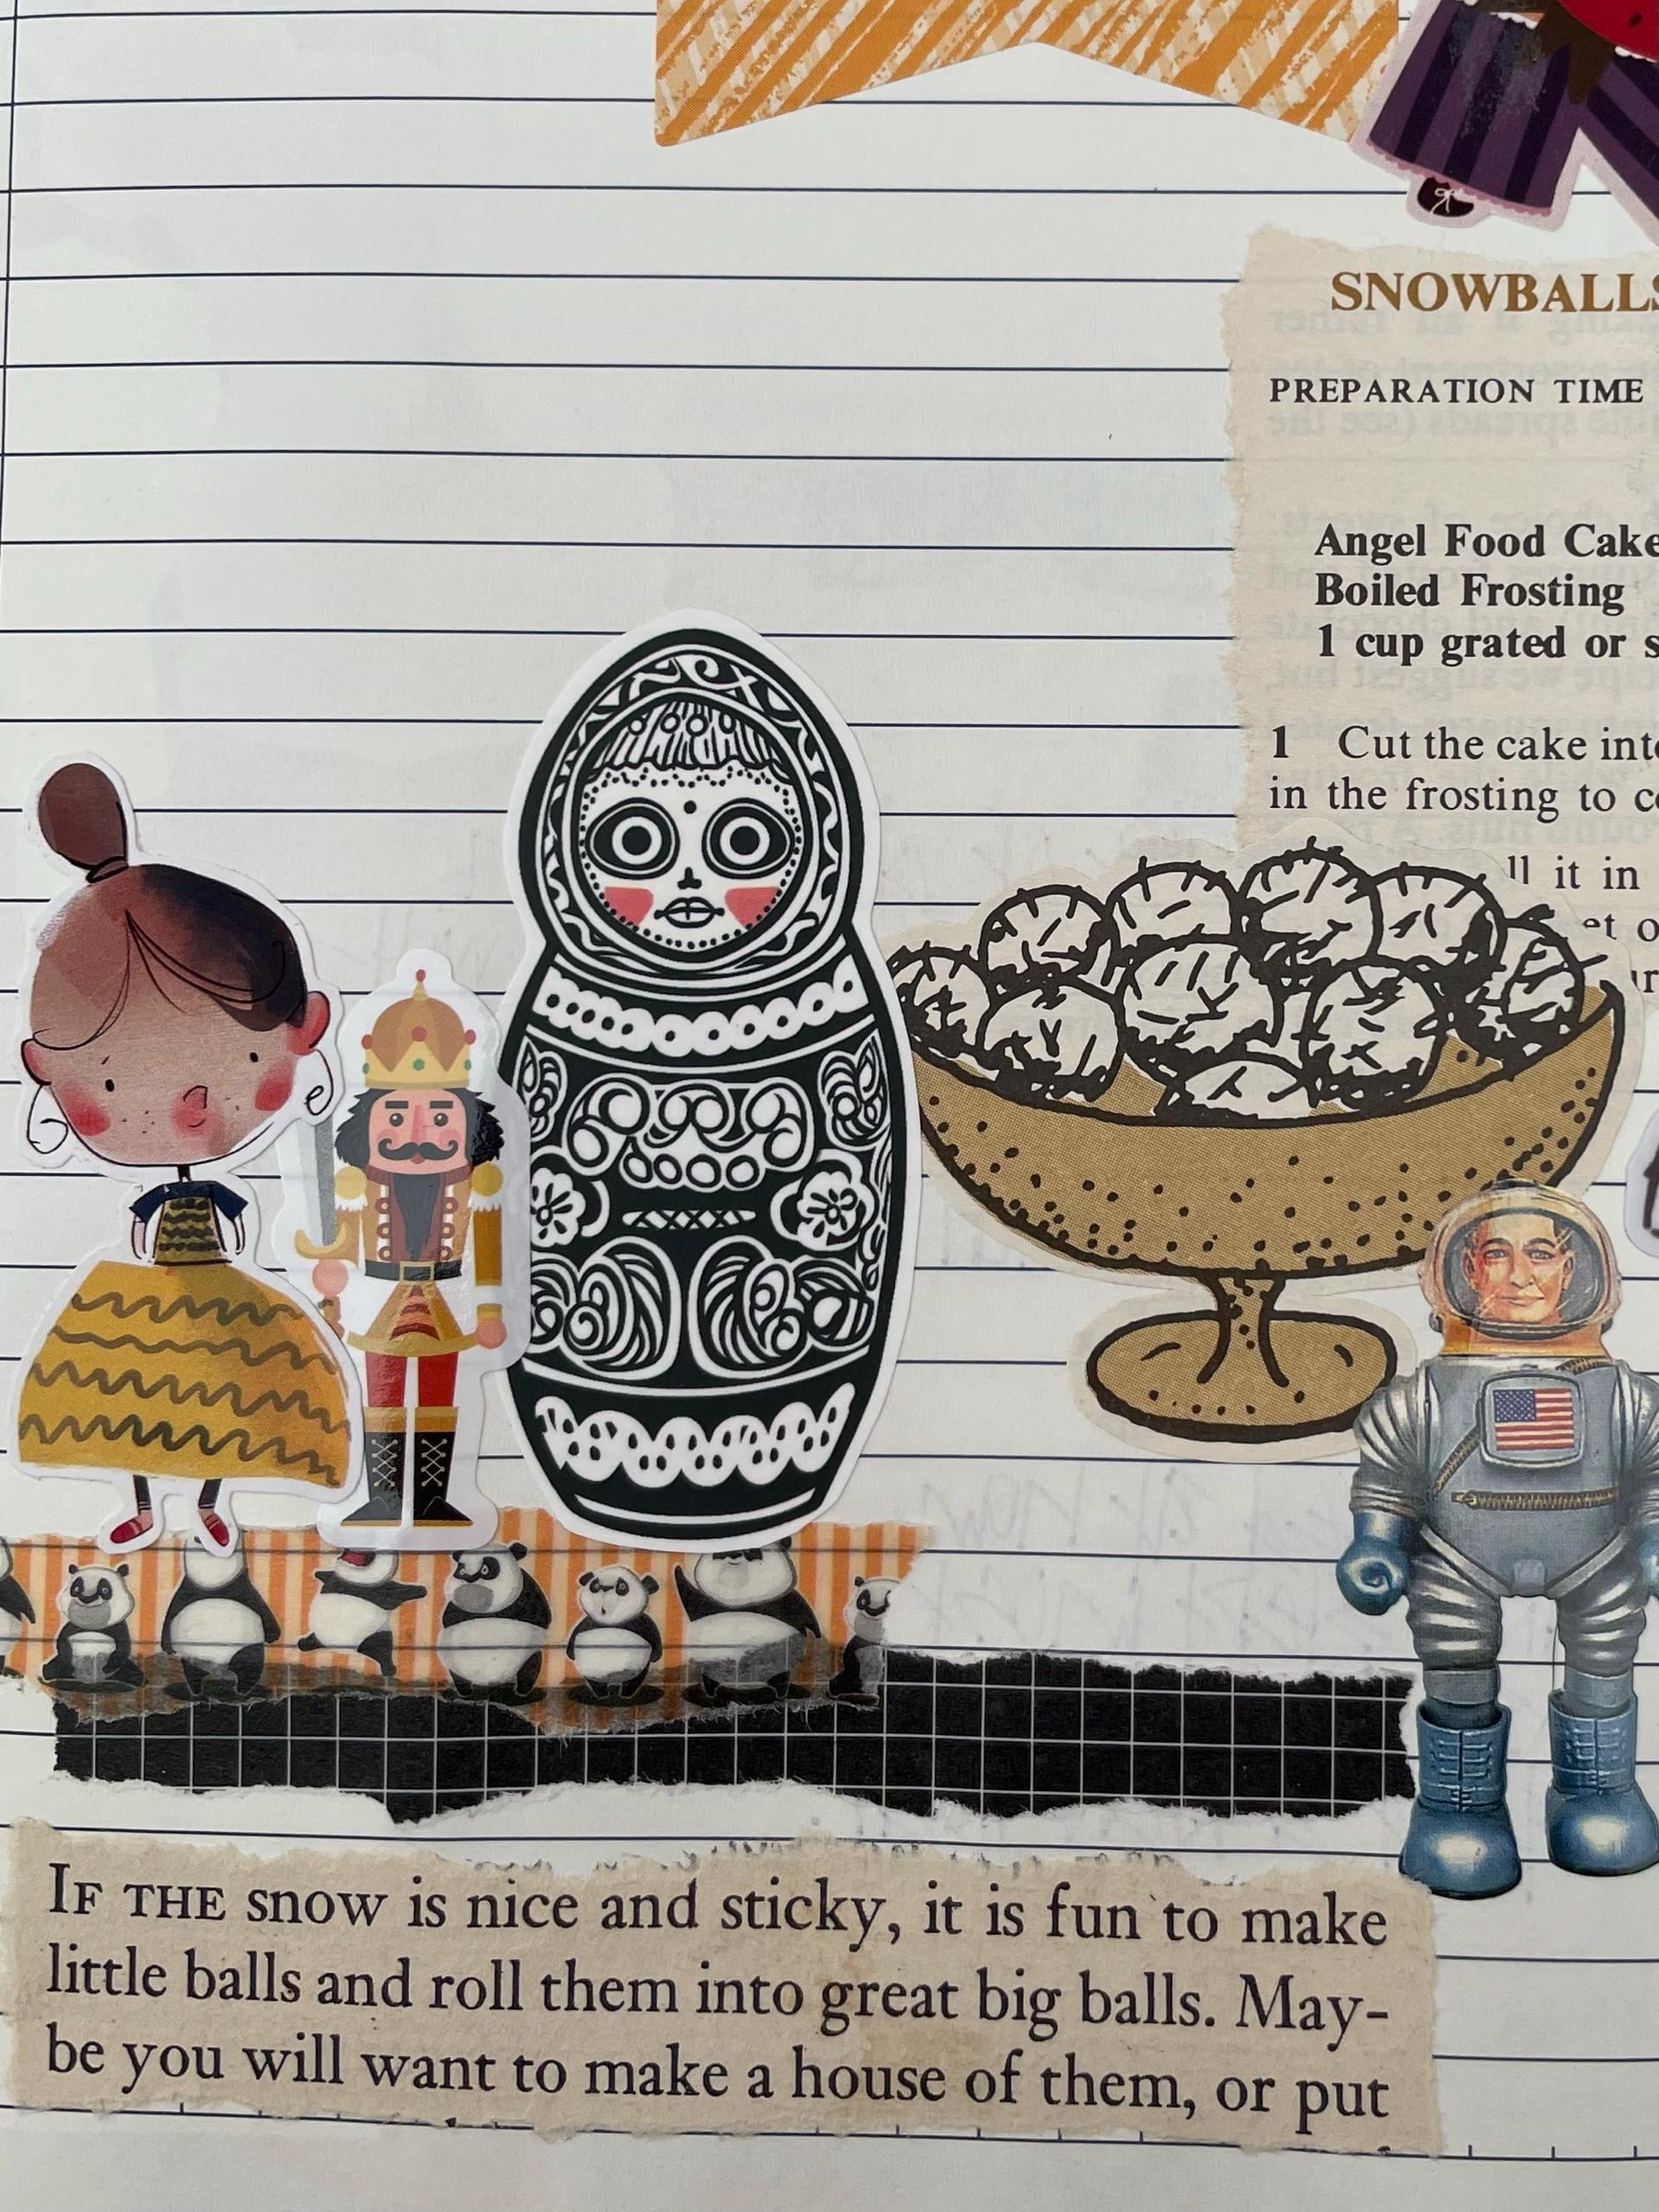 SNOWBALLS
PREPARATION TIME
Angel Food Cake
Boiled Frosting
1 cup grated or
1 Cut the cake
in the frosting to
it in
IF THE snow is nice and sticky, it is fun to make
little balls and roll them into great big balls. May-
be you will want to make a house of them, or put